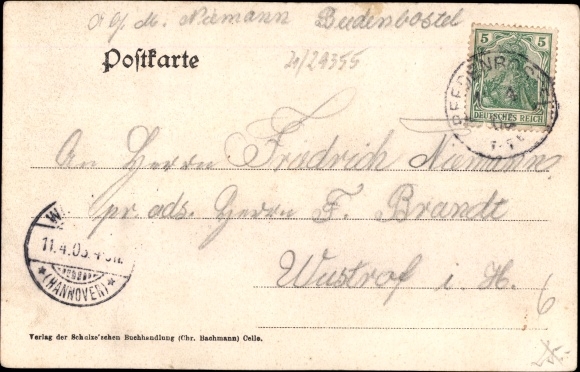 M. Niemann Beedenbostel
Postkarte
5 5
DEUTSCHES REICH
BEEDENBOSTEL
An Herrn Friedrich Niemann
pr. ads. Herrn F. Brandt
Wustrof i. H.
11.4.05.
(HANNOVER)
6
Verlag der Schulze'schen Buchhandlung (Chr. Bachmann) Celle.